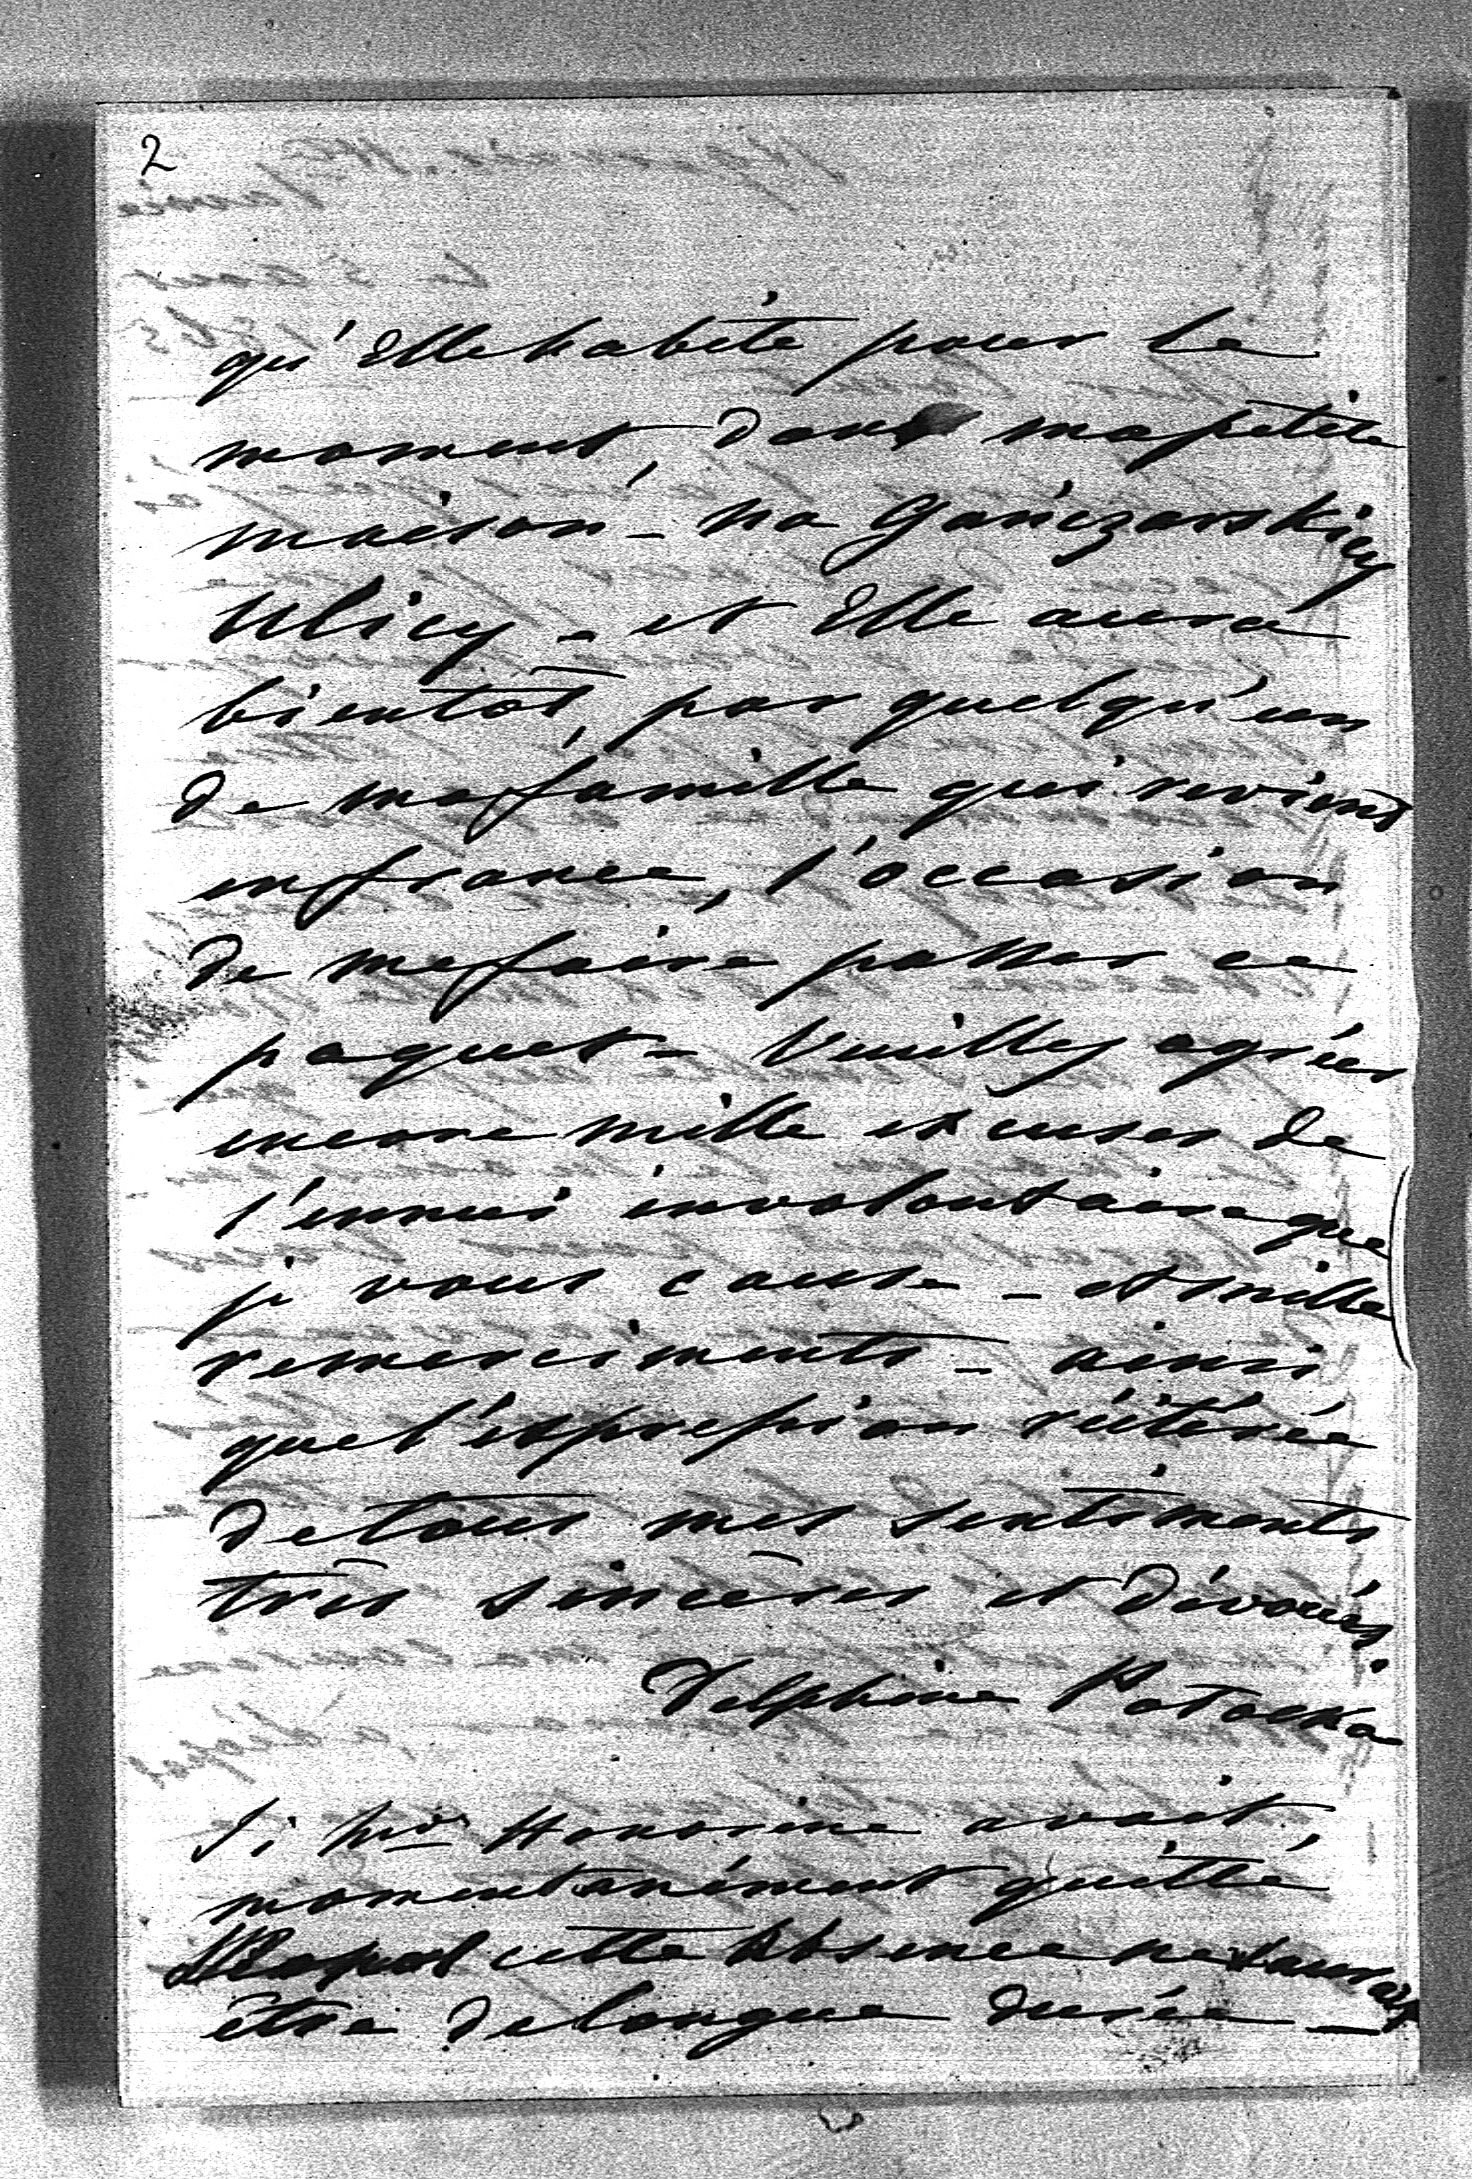 2
qu'Elle habite pour le
moment, dans ma petite
maison – na Gańczarskiey
Ulicy – et Elle aura
bientôt, par quelqu'un
de ma famille qui revient
en france, l'occasion
de me faire passer ce
paquet – Veuillez agréer
encore mille excuses de
l'ennui involontaire que
je vous cause – et mille
remerciments – ainsi
que l'expression réitérée
de tous mes sentiments
très sincères et dévoués
Delphine Potocka
Si Mme Honorine avait
momentanément quitté
Léopol cette absence ne saurait
être de longue durée –